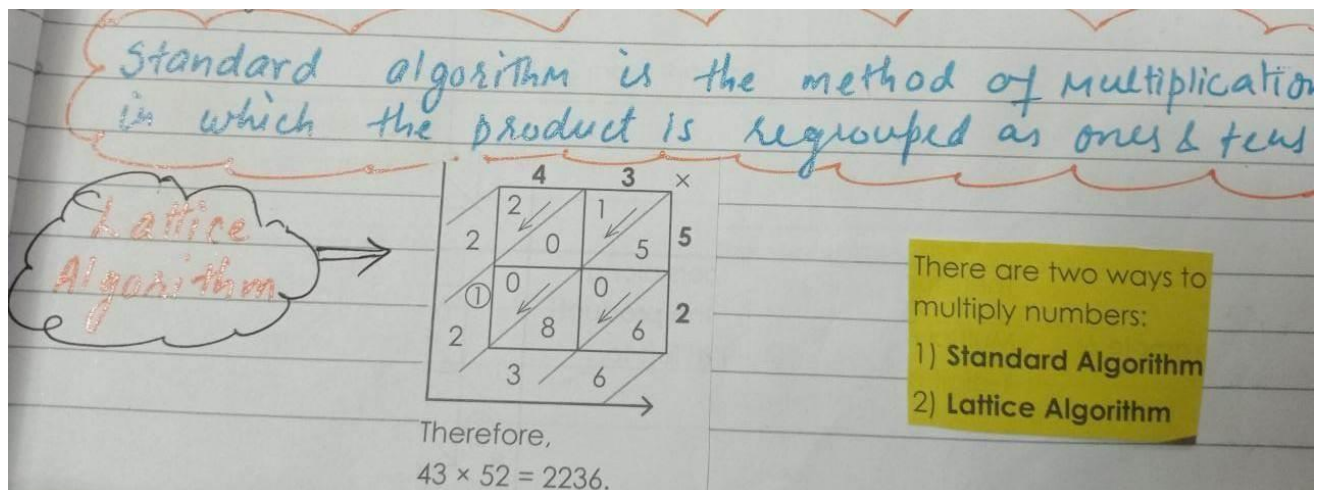 Standard algorithm is the method of Multiplication
in which the product is regrouped as ones & tens
Lattice
Algorithm
4 3 ×
2 1
2 0 5 5
① 0 0
2 8 6 2
3 6
Therefore,
43 × 52 = 2236.
There are two ways to
multiply numbers:
1) Standard Algorithm
2) Lattice Algorithm